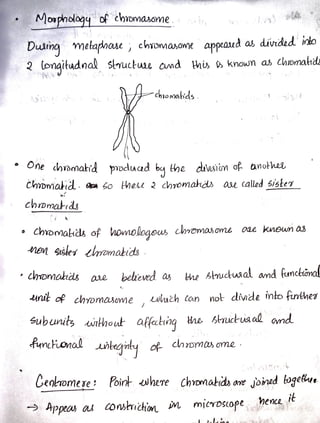 • Morphology of chromasome.
During metaphase, chromasome appeared as divided into
2 longitudnal structure and this is known as chromatids
chromatids.
• One chromatid produced by the division of another
Chromatid. So these 2 chromatids are called sister
chromatids
• chromatids of homologous chromasome are known as
non sister chromatids.
• chromatids are believed as the structural and functional
unit of chromasome, which can not divide into further
subunits without affecting the structural and
functional integrity of chromasome.
Centromere: Point where chromatids are joined together
→ Appears as constriction in microscope hence it